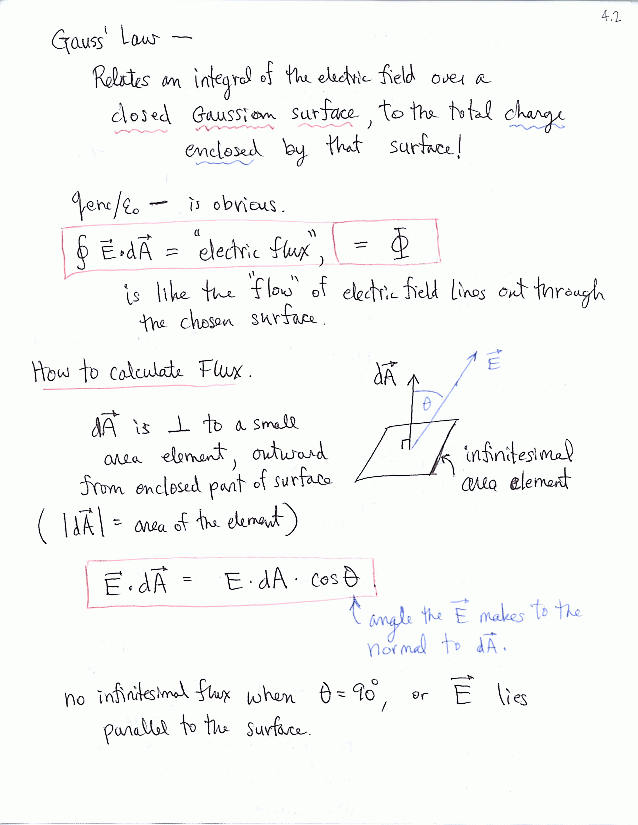 4.2
Gauss' Law —
Relates an integral of the electric field over a
closed Gaussian surface, to the total charge
enclosed by that surface!
qenc/ε₀ — is obvious.
∮ E⃗·dA⃗ = "electric flux", = Φ
is like the "flow" of electric field lines out through
the chosen surface.
How to calculate Flux.
dA⃗ is ⊥ to a small
area element, outward
from enclosed part of surface
( |dA⃗| = area of the element )
dA⃗
E⃗
θ
infinitesimal
area element
E⃗·dA⃗ = E·dA·cosθ
angle the E⃗ makes to the
normal to dA⃗.
no infinitesimal flux when θ = 90°, or E⃗ lies
parallel to the surface.